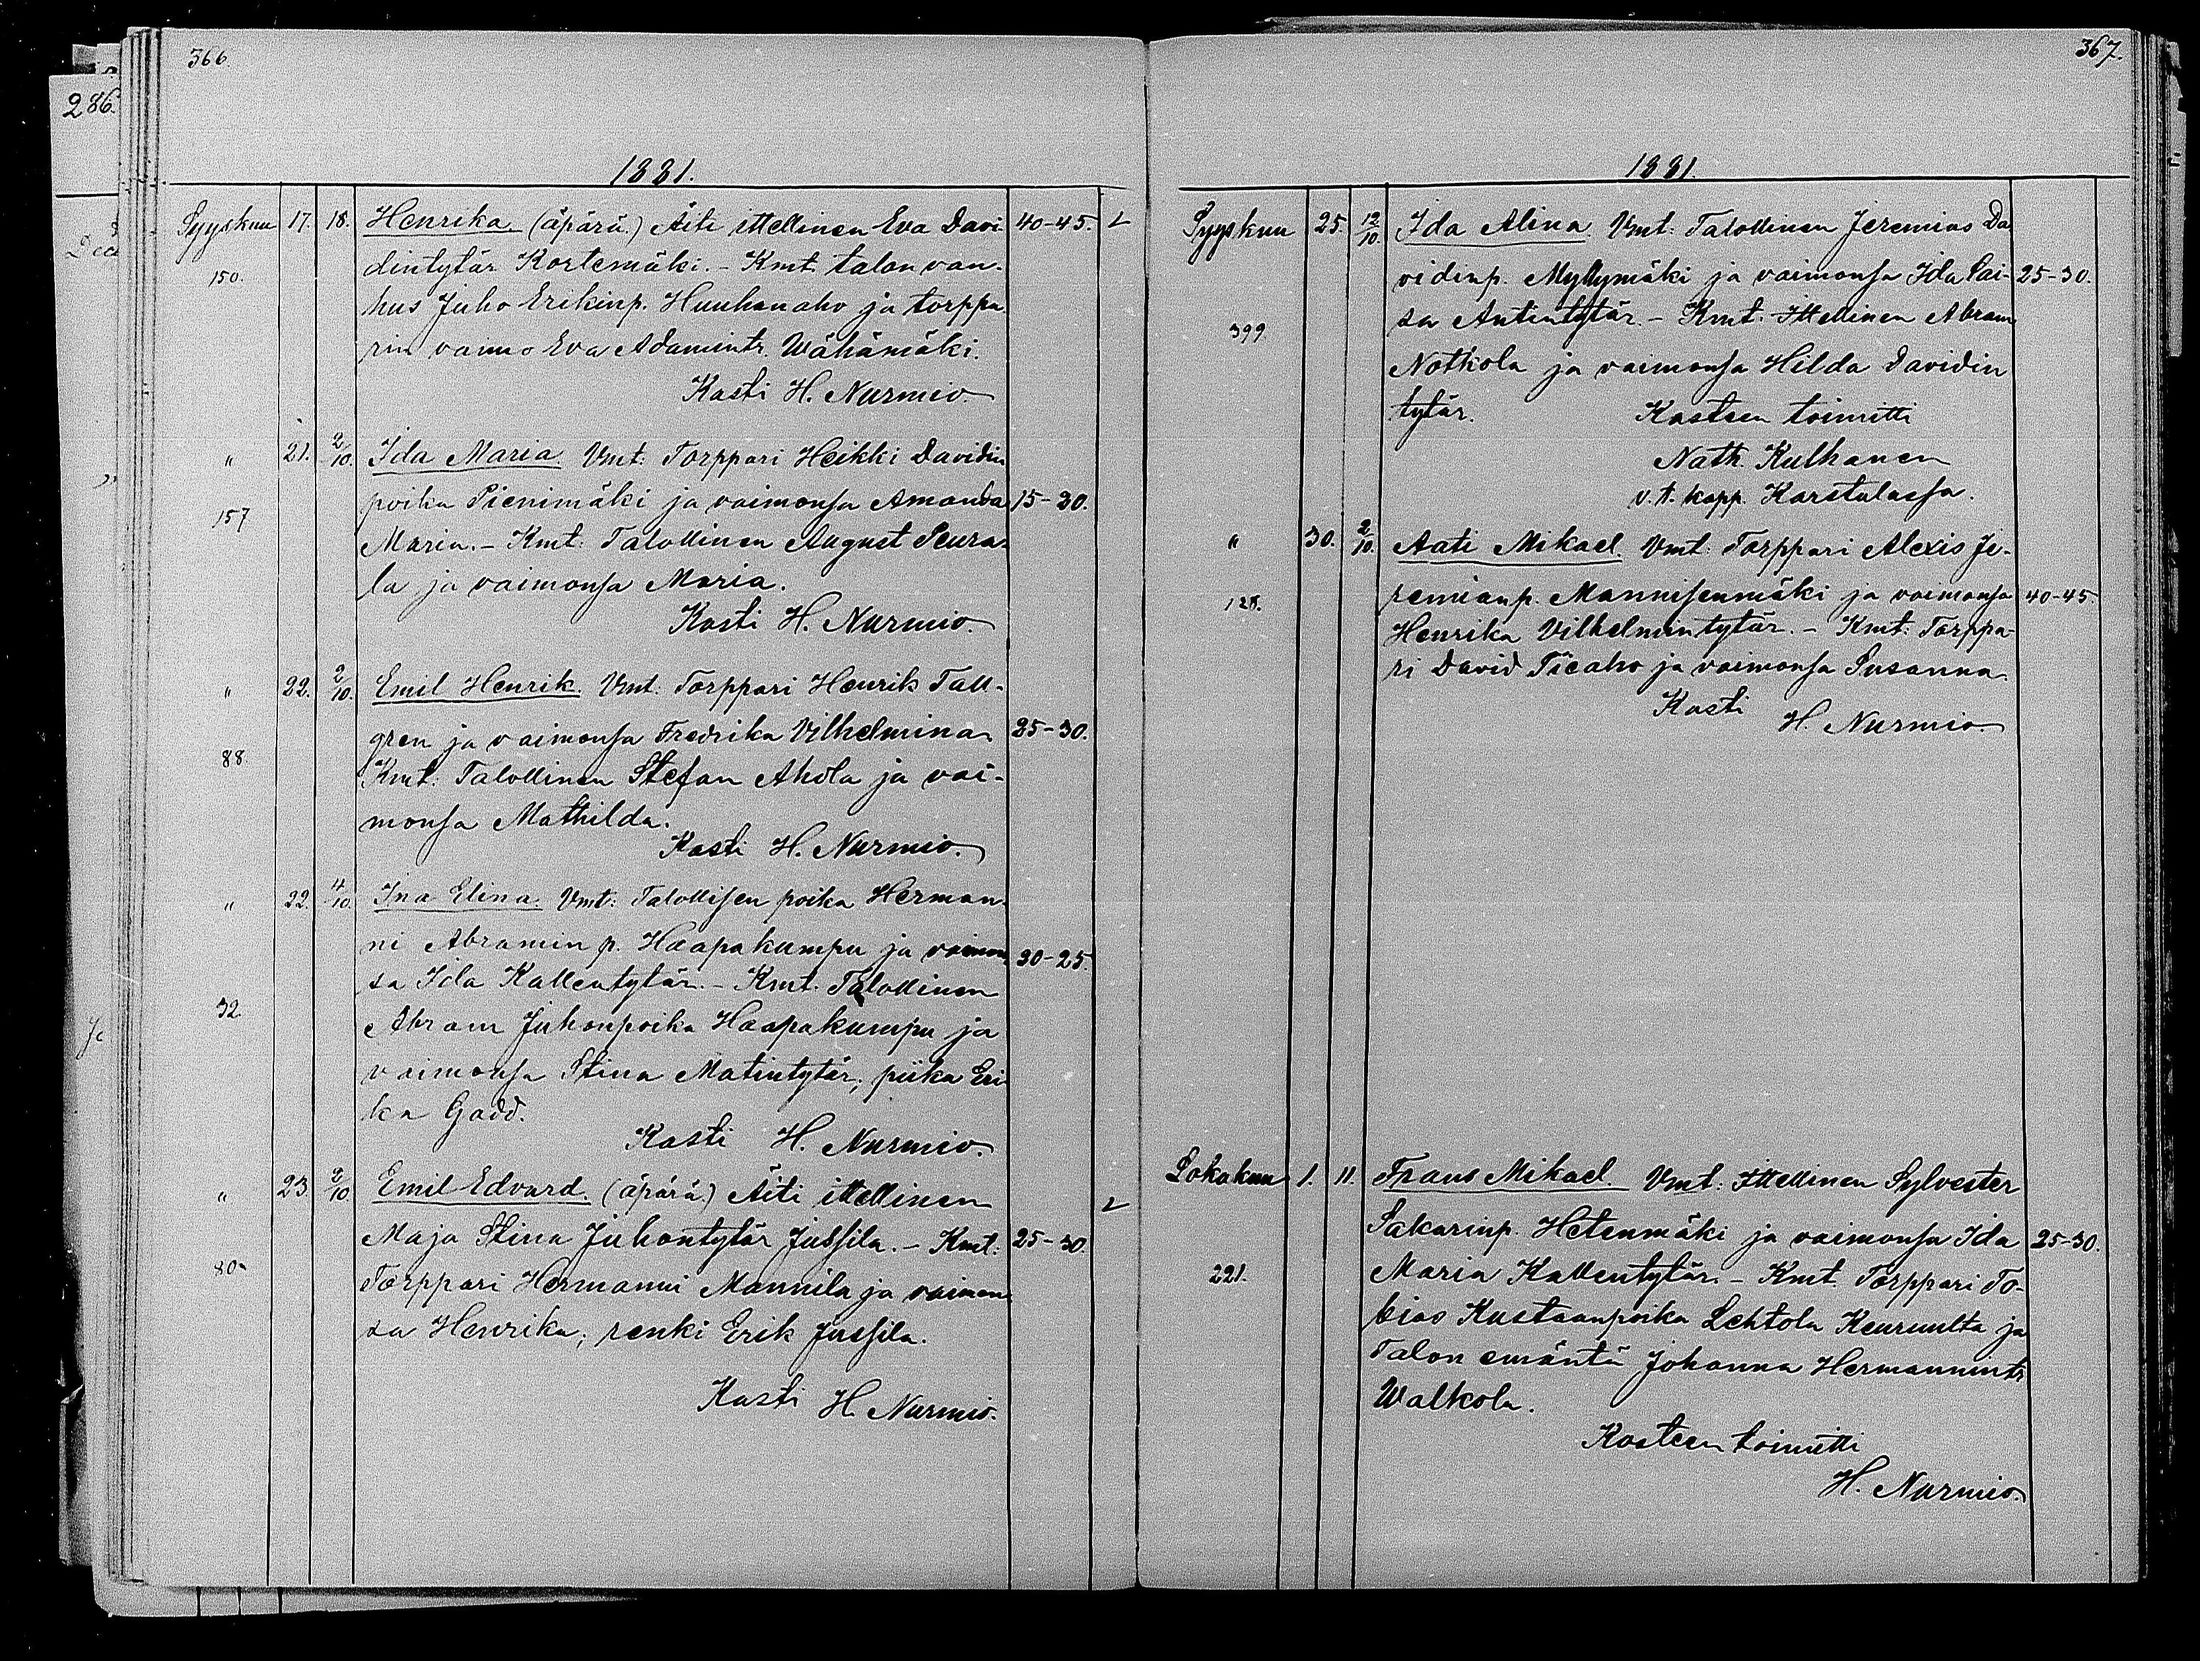 366.
286.
1881.
Syyskuu 17. 18. Henrika. (äpärä.) Äiti ittellinen Eva Davi- 40-45. L
150. dintytär Kortemäki. - Kmt. talon van-
hus Juho Erikinp. Huuhanaho ja torppa
rin vaimo Eva Adamintr. Wähämäki.
Kasti H. Nurmio.
" 21. 2/10. Ida Maria. Vmt: Torppari Heikki Davidin
157 poika Pienimäki ja vaimonsa Amanda 15-20.
Maria. - Kmt: Talollinen August Peura-
la ja vaimonsa Maria.
Kasti H. Nurmio.
" 22. 2/10. Emil Henrik. Vmt: Torppari Henrik Tall-
88 gren ja vaimonsa Fredrika Vilhelmina 25-30.
Kmt: Talollinen Stefan Ahola ja vai-
monsa Mathilda.
Kasti H. Nurmio.
" 22. 4/10 Ina Elina. Vmt: Talollisen poika Herman-
ni Abramin p. Haapakumpu ja vaimon 20-25.
32. sa Ida Kallentytär. - Kmt. Talollinen
Abram Juhonpoika Haapakumpu ja
vaimonsa Stina Matintytär; piika Eri
ka Gadd.
Kasti H. Nurmio.
" 23. 2/10. Emil Edvard. (äpärä.) Äiti ittellinen L
Maja Stina Juhontytär Jussila. - Kmt: 25-30.
80. Torppari Hermanni Mannila ja vaimon
sa Henrika; renki Erik Jussila.
Kasti H. Nurmio.
367.
1881.
Syyskuu 25. 12/10. Ida Alina. Vmt: Talollinen Jeremias Da
vidinp. Myllymäki ja vaimonsa Ida Lai- 25-30.
399. sa Antintytär. - Kmt: Ittellinen Abram
Notkola ja vaimonsa Hilda Davidin
tytär. Kasteen toimitti
Nath. Kulhanen
v.t. kapp. Karstulassa.
" 30. 2/10. Aati Mikael. Vmt: Torppari Alexis Je-
128. remianp. Mannisenmäki ja vaimonsa 40-45
Henrika Vilhelmintytär. - Kmt: Torppa-
ri David Tieaho ja vaimonsa Susanna.
Kasti H. Nurmio.
Lokakuu 1. 11. Frans Mikael. Vmt: Ittellinen Sylvester
Sakarinp. Hetenmäki ja vaimonsa Ida 25-30.
221. Maria Kallentytär. - Kmt. Torppari To-
bias Kustaanpoika Lehtola Keuruulta ja
Talon emäntä Johanna Hermannintr
Walkola.
Kasteen toimitti
H. Nurmio.